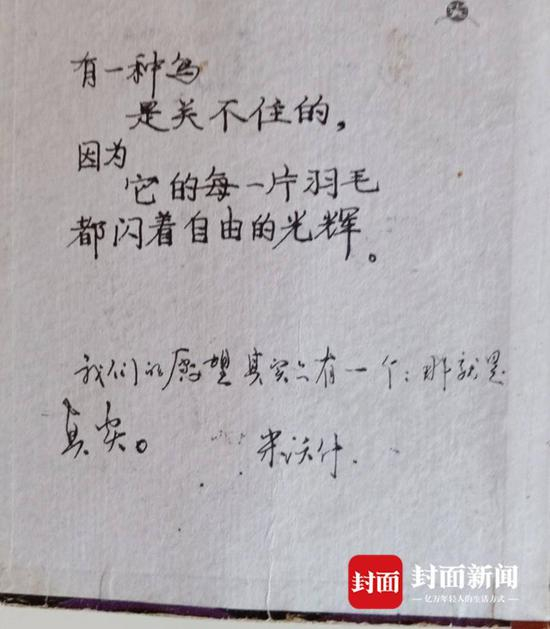 有一种鸟
是关不住的，
因为
它的每一片羽毛
都闪着自由的光辉。
我们的愿望其实只有一个：那就是
真实。 米沃什.
封面 封面新闻
亿万年轻人的生活方式